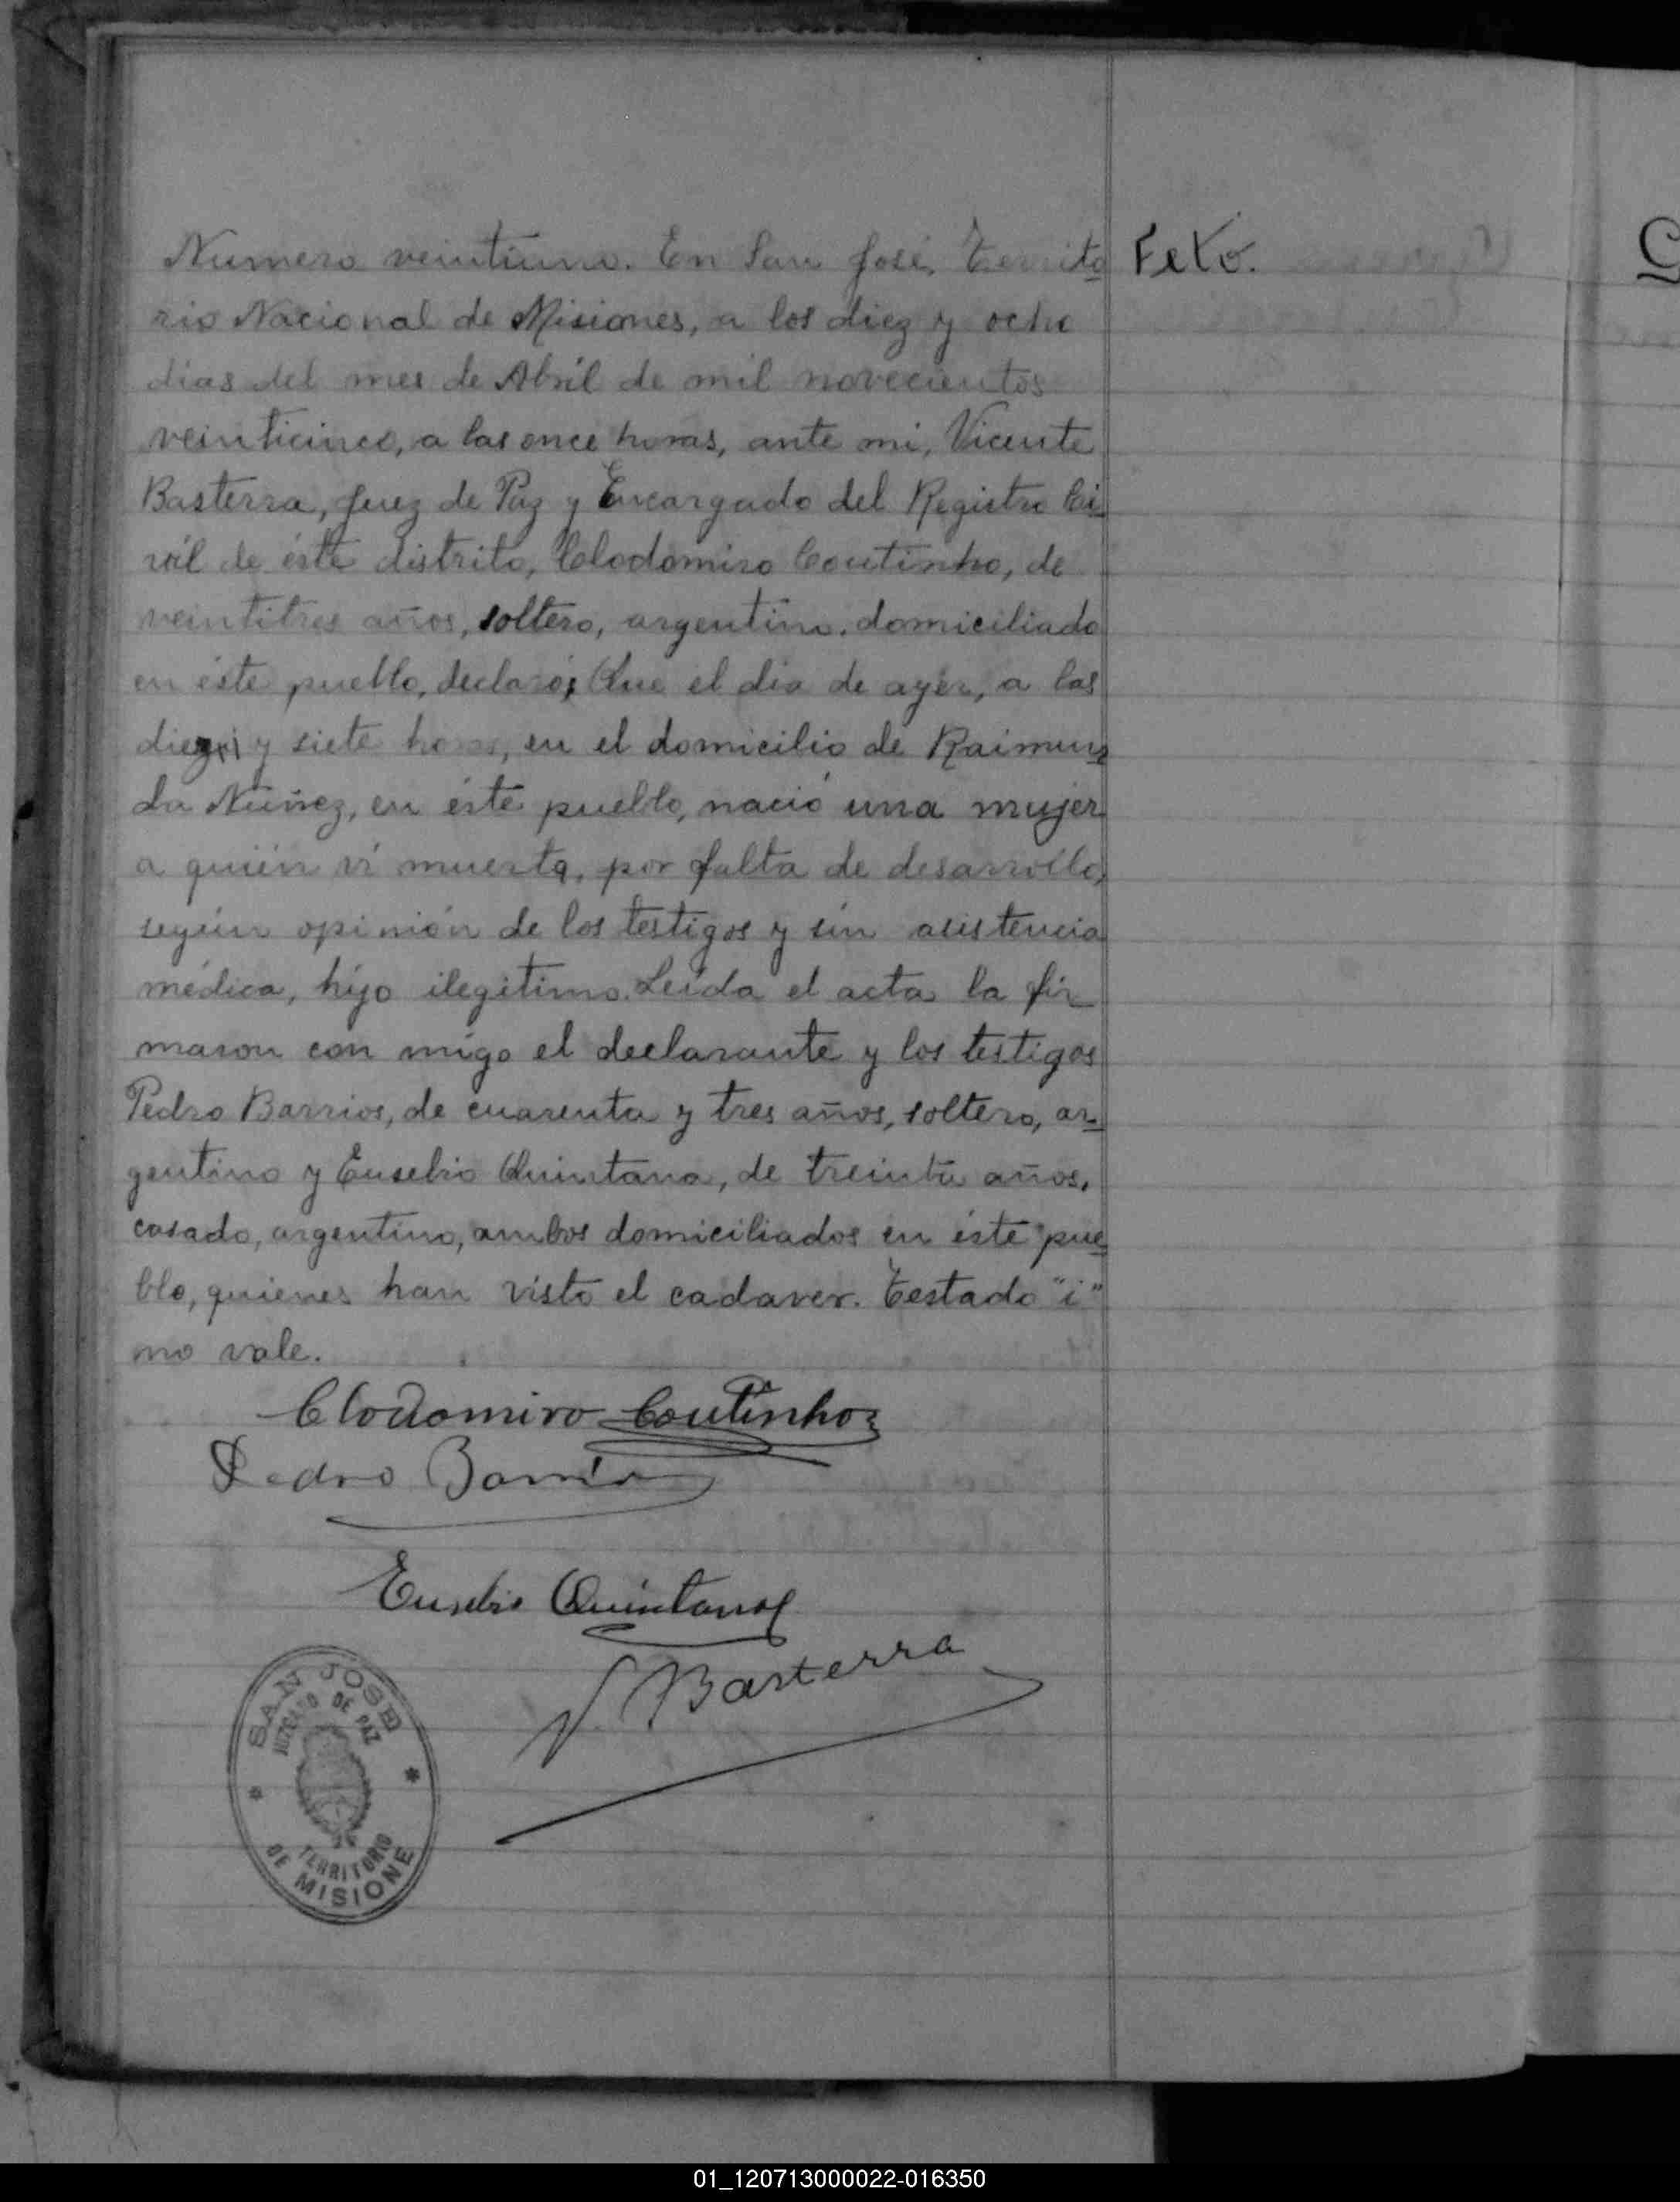 Numero veintiuno. En San José, Territo
rio Nacional de Misiones, a los diez y ocho
dias del mes de Abril de mil novecientos
veinticinco, a las once horas, ante mi, Vicente
Basterra, Juez de Paz y Encargado del Registro Ci
vil de éste distrito, Clodomiro Coutinho, de
veintitres años, soltero, argentino, domiciliado
en éste pueblo, declaró; Que el dia de ayer, a las
diez y siete horas, en el domicilio de Raimun
da Núñez, en éste pueblo, nació una mujer
a quién ví muerta, por falta de desarrollo,
según opinión de los testigos y sin asistencia
médica, hijo ilegitimo. Leída el acta la fir
maron con migo el declarante y los testigos
Pedro Barrios, de cuarenta y tres años, soltero, ar
gentino y Eusebio Quintana, de treinta años,
casado, argentino, ambos domiciliados en éste pue
blo, quienes han visto el cadaver. Testado "i"
no vale.
Clodomiro Coutinho
Pedro Barrio
Eusebio Quintana
V. Basterra
Feto.
C
SAN JOSE
JUZGADO DE PAZ
TERRITORIO
DE MISIONE
01_120713000022-016350